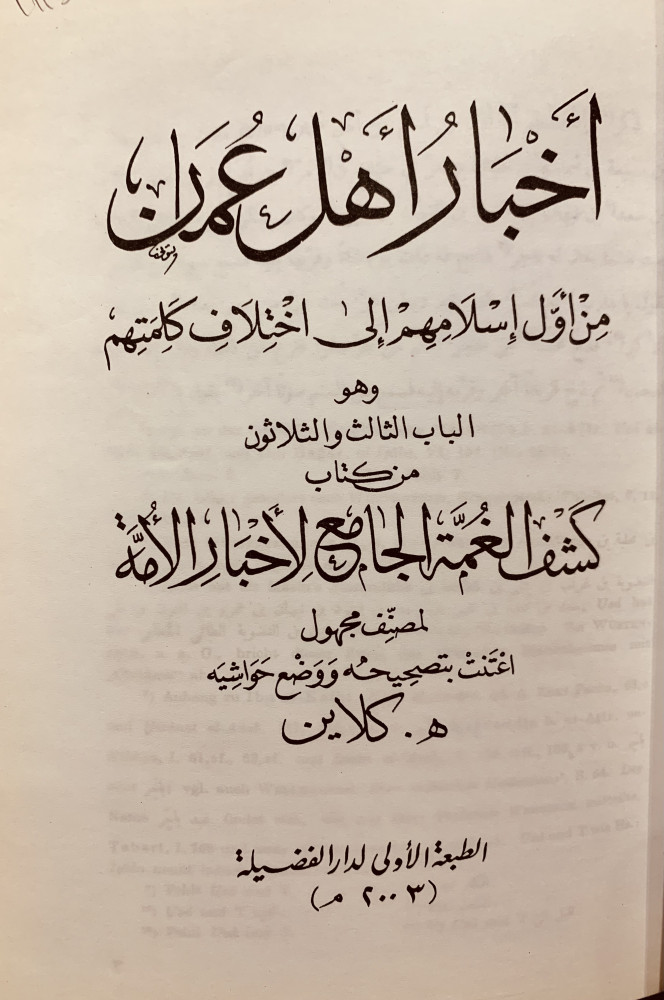 أَخْبَارُ أَهْلِ عُمَان
مِنْ أَوَّلِ إِسْلَامِهِمْ إِلَى اخْتِلَافِ كَلِمَتِهِم
وهو
الباب الثالث والثلاثون
من كتاب
كَشْفِ الغُمَّة الجامع لِأَخْبَارِ الأُمَّة
لمصنِّف مجهول
اعْتَنَتْ بتصحيحه وَوَضْع حَوَاشِيَه
ه. كلاين
الطبعة الأولى لدار الفضيلة
(٢٠٠٣ م)